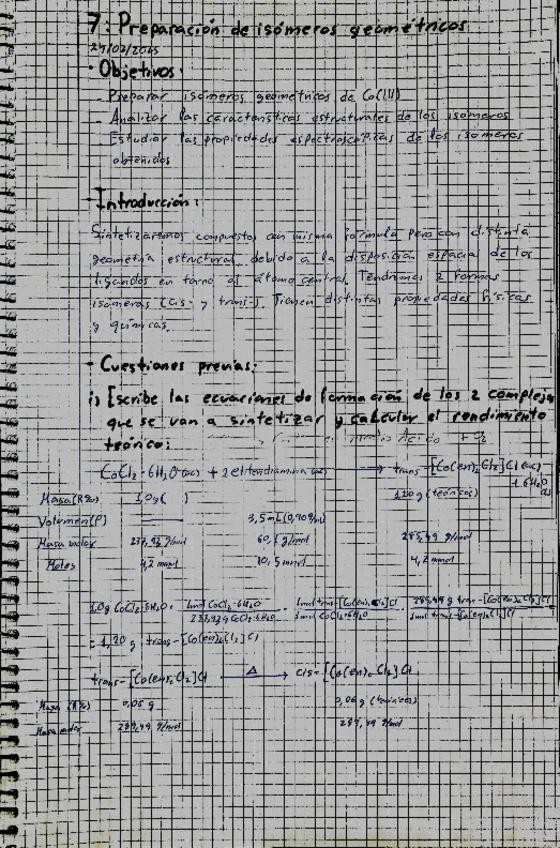 7: Preparación de isómeros geométricos
Objetivos:
- Preparar isómeros geométricos de Co(III)
- Analizar las características estructurales de los isómeros
- Estudiar las propiedades espectroscópicas de los isómeros
obtenidos
- Introducción:
Sintetizaremos compuestos con misma fórmula pero con distinta
geometría estructural debido a la disposición espacial de los
ligandos en torno al átomo central. Tendremos 2 formas
isómeras (cis- y trans-). Tienen distintas propiedades físicas
y químicas.
- Cuestiones previas:
1) Escribe las ecuaciones de formación de los 2 complejos
que se van a sintetizar y calcular el rendimiento
teórico:
CoCl2·6H2O (ac) + 2 etilendiamina (ac) → trans-[Co(en)2Cl2]Cl (ac)
+ 6H2O
Masa (R%) 1,0g 1,20 g (teóricos)
Volumen (P) 3,5 mL
Masa molar 237,93 g/mol 60,1 g/mol 285,49 g/mol
Moles 4,2 mmol 4,2 mmol
= 1,20 g trans-[Co(en)2Cl2]Cl
trans-[Co(en)2Cl2]Cl Δ → cis-[Co(en)2Cl2]Cl
Masa (R%) 0,06 g 0,06 g (teóricos)
Masa molar 285,49 g/mol 285,49 g/mol